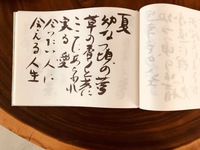 夏
幼なき頃の夢
草の香りと共に
ここにあらわれ
実る愛
会いたい人に
会える人生